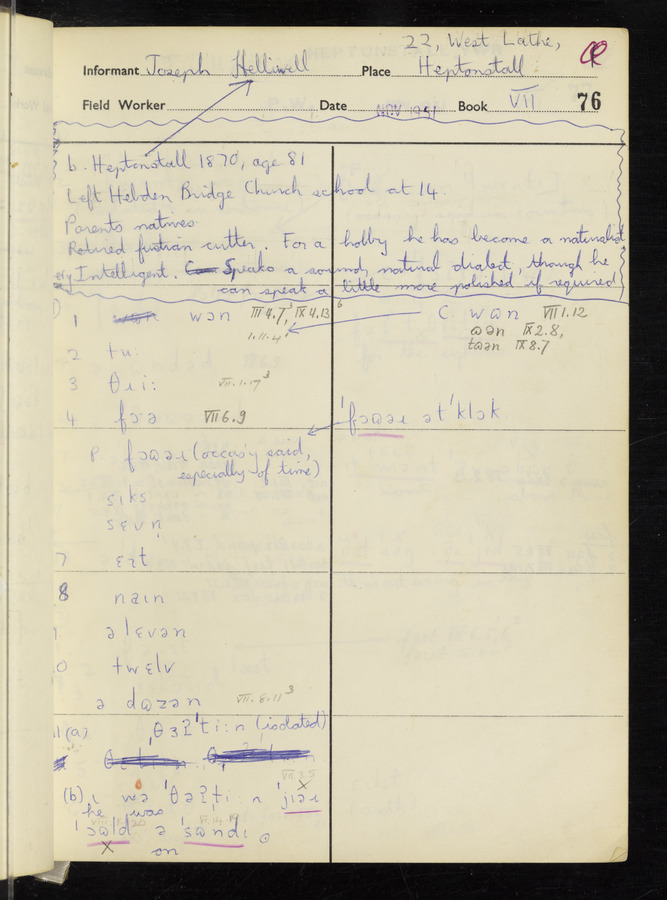 22, West Lathe,
Informant Joseph Helliwell Place Heptonstall
Field Worker Date NOV 1951 Book VII 76
b. Heptonstall 1870, age 81
Left Hebden Bridge Church school at 14.
Parents natives.
Retired fustian cutter. For a hobby he has become a naturalist
Intelligent. Speaks a sound, natural dialect, though he
can speak a little more polished if required
1 wən III 4.7, IX 4.13 C. wɷn VII 1.12
1.11.4 ɷən IX 2.8,
tɷən IX 8.7
2 tu:
3 θɹi: VII.1.17 3
4 fɔə VII 6.9 ˈfɔɷəɹ ətˈklɔk
P. fɔɷəɹ (occas'y said,
especially of time)
sɩks
sɛvn̩
7 ɛɪt
8 naɩn
əlɛvən
twɛlv
ə dɷzən VII.8.11 3
11(a) θɜʔˈti:n (isolated)
VII 3.5
(b) ɩ wə ˈθəʔti:n ˈjɪəɹ
he was
ˈɔɷld ə ˈsɷndɩ
on